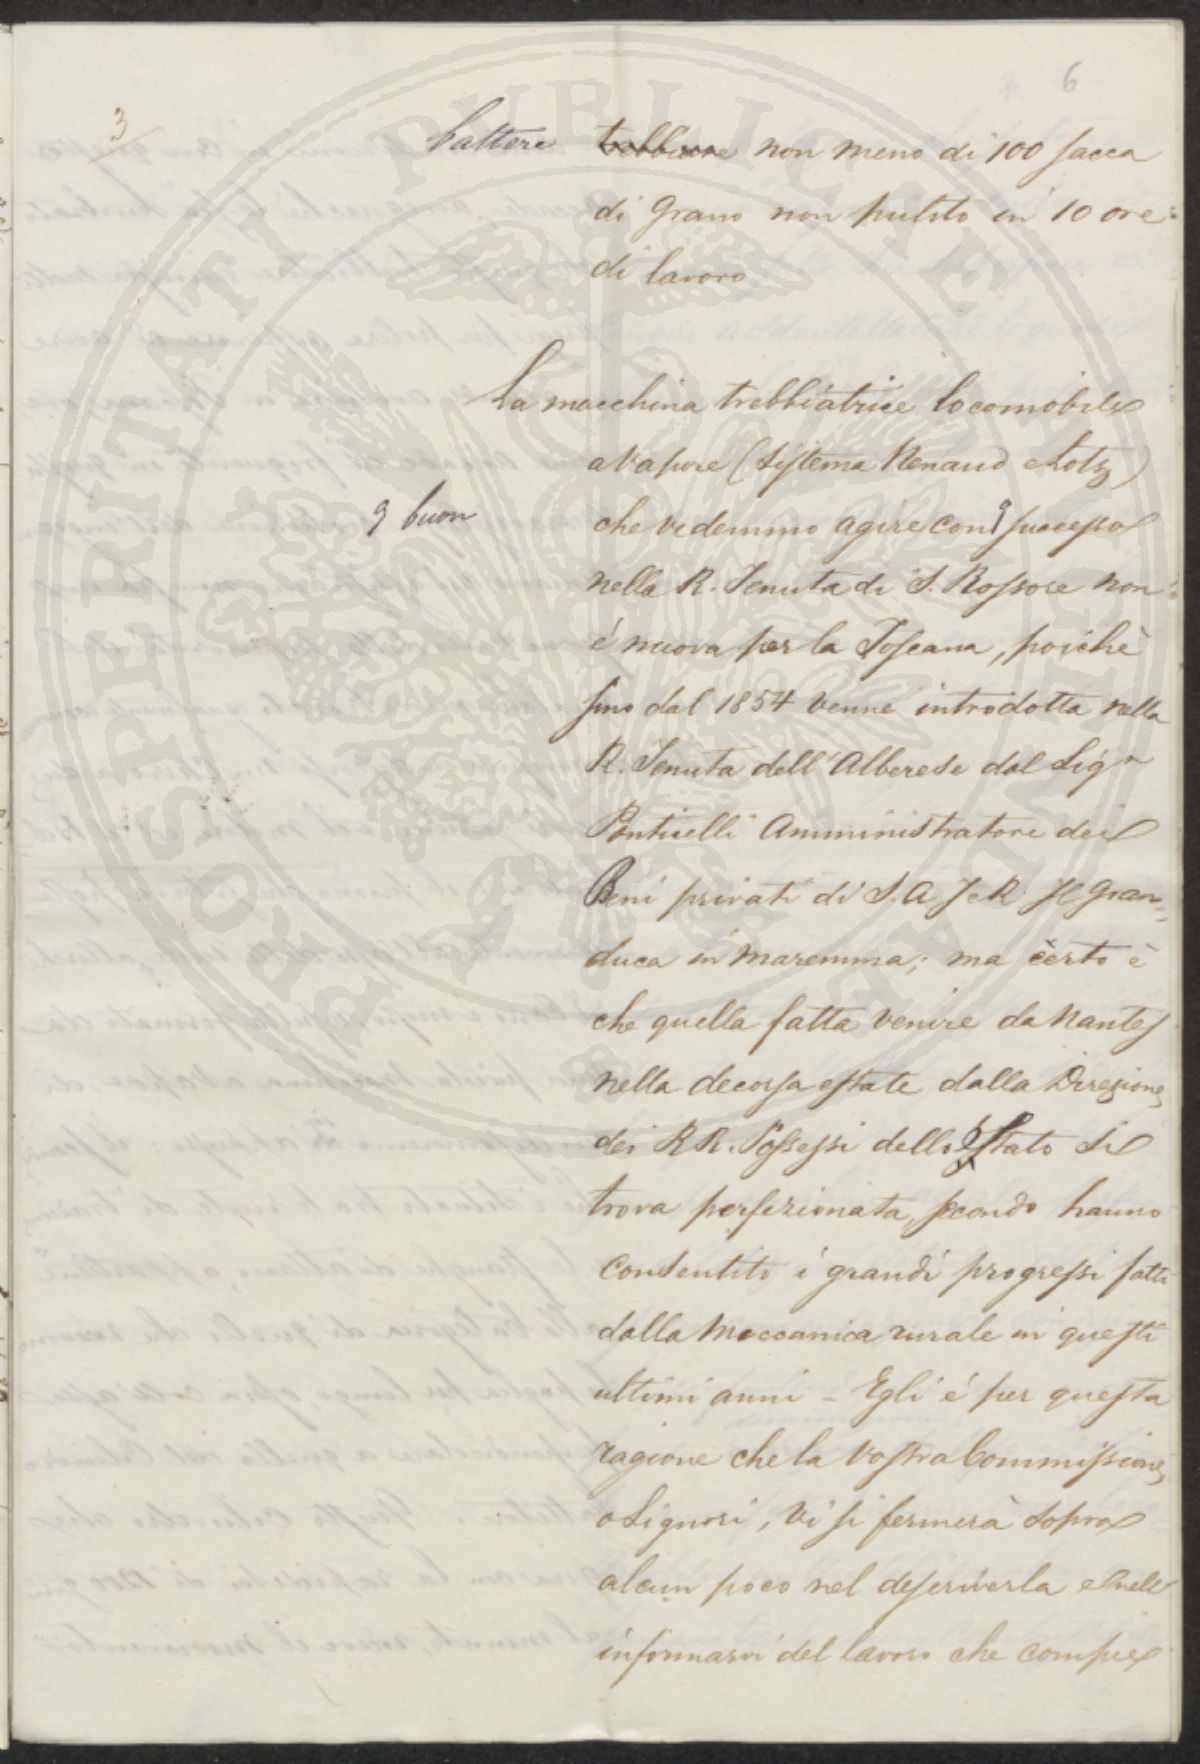 6
3
battere trebbiare non meno di 100 sacca
di grano non pulito in 10 ore
di lavoro
La macchina trebbiatrice locomobile
a Vapore (Sistema Renaud e Lotz)
9 buon
che vedemmo agire con 9 successo
nella R. Tenuta di S. Rossore non
é nuova per la Toscana, poichè
fino dal 1854 venne introdotta nella
R. Tenuta dell'Alberese dal Sigr
Ponticelli Amministratore dei
Beni privati di S. A I e R. Il Gran=
duca in Maremma; ma certo è
che quella fatta venire da Nantes
nella decorsa estate dalla Direzione
dei RR. Possessi dello Stato si
trova perfezionata, secondo hanno
consentito i grandi progressi fatti
dalla Meccanica rurale in questi
ultimi anni - Egli é per questa
ragione che la Vostra Commissione,
o Signori, Vi si fermerà sopra
alcun poco nel descriverla e nell'
informarvi del lavoro che compie
PROSPERITATI PUBLICAE AUGENDAE